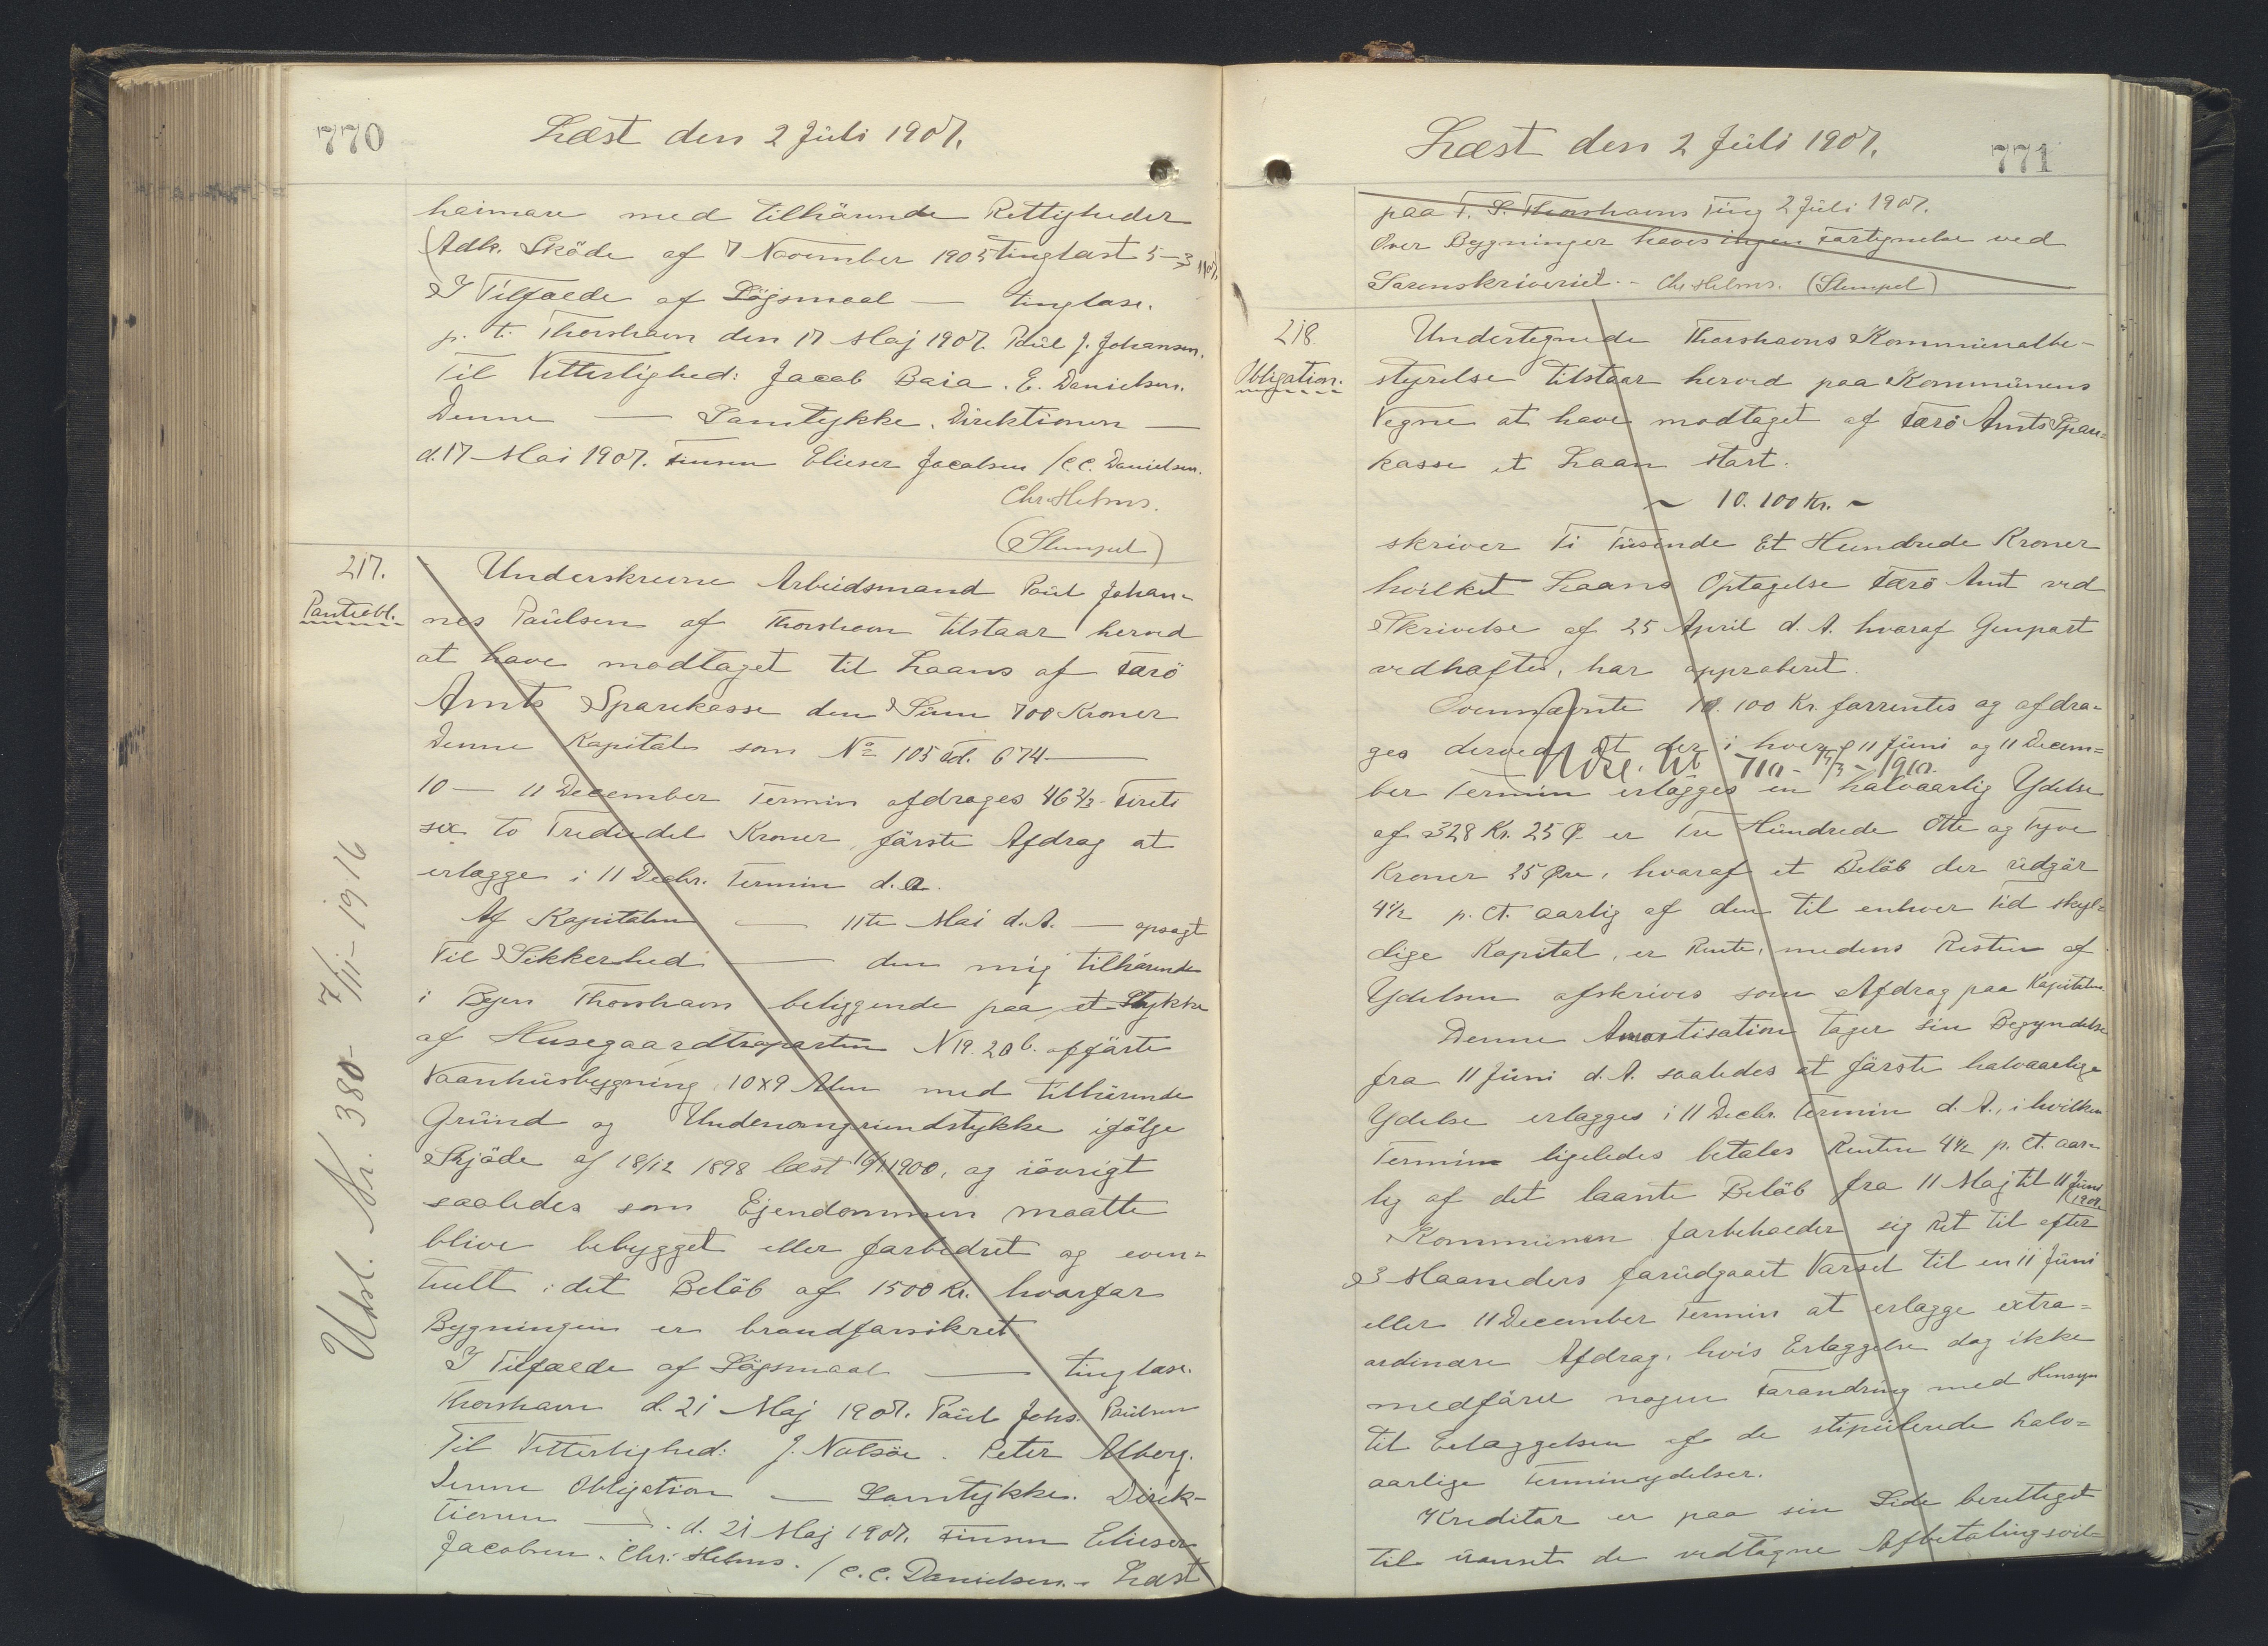 770
Læst den 2 Juli 1907.
heimare med tilhörende Rettigheder
(Adk. Sköde af 7 November 1905 tinglæst 5-3 1907)
I Tilfælde af Lögsmaal — tinglæse.
p. t. Thorshavn den 17 Maj 1907. Poul J. Johansen.
Til Vitterlighed: Jacob Baia. E. Danielsen.
Denne — Samtykke. Direktionen —
d. 17 Mai 1907. Finsen Elieser Jacobsen / C.C. Danielsen.
Chr. Helms.
(Stempel)
217.
Panteobl.
Underskrevne Arbeidsmand Poul Johan-
nes Paulsen af Thorshavn tilstaar herved
at have modtaget til Laans af Færö
Amts Sparekasse den Sum 700 Kroner
Denne Kapital som No 105 Fol. 674 —
10 — 11 December Termin afdrages 46 2/3 - Fireti
sex to Trediedel Kroner, förste Afdrag at
erlægge i 11 Decbr. Termin d. A.
Af Kapitalen — 11te Mai d. A. — opsagt
Til Sikkerhed — den mig tilhörende
i Byen Thorshavn beliggende paa et Stykke
af Husegaardtraparten N 19. 20 b. opförte
Vaanhusbygning 10x9 Alen med tilhörende
Grund og Undenomgrundstykke ifölge
Skjöde af 18/12 1898 læst 10/1 1900, og iövrigt
saaledes som Ejendommen maatte
blive bebygget eller forbedret og even-
tuelt i det Belöb af 1500 Kr. hvorfor
Bygningen er brandforsikret.
I Tilfælde af Lögsmaal — tinglæse.
Thorshavn d. 21 Maj 1907. Poul Johs. Paulsen
Til Vitterlighed: J. Nolsöe. Peter Alberg.
Denne Obligation — Samtykke. Direk-
tionen —. d. 21 Maj 1907. Finsen Elieser
Jacobsen. Chr. Helms. / C.C. Danielsen. - Læst
Udsl. Nr. 380 - 7/11 - 1916
771
Læst den 2 Juli 1907.
paa F. S. Thorshavns Ting 2 Juli 1907.
Over Bygninger haves ingen Fortegnelse ved
Sorenskriveriet. - Chr. Helms. (Stempel)
218.
Obligation.
Undertegnede Thorshavns Kommunalbe-
styrelse tilstaar herved paa Kommunens
Vegne at have modtaget af Færö Amts Spare-
kasse et Laan stort.
~ 10.100 Kr. ~
skriver Ti Tusinde Et Hundrede Kroner
hvilket Laans Optagelse Færö Amt ved
Skrivelse af 25 April d. A. hvoraf Genpart
vedhæftes, har approberet.
Ovennævnte 10.100 Kr. forrentes og afdra-
ges derved at der i hver 11 Juni og 11 Decem-
Udsl. Nr 710 - 15/3 - 1910.
ber Termin erlægges en halvaarlig Ydelse
af 328 Kr. 25 Ø. er Tre Hundrede Otte og Tyve
Kroner 25 Øre, hvoraf et Belöb der udgör
4½ p. Ct. aarlig af den til enhver Tid skyl-
dige Kapital, er Rente, medens Resten af
Ydelsen afskrives som Afdrag paa Kapitalen.
Denne Amortisation tager sin Begyndelse
fra 11 Juni d. A. saaledes at förste halvaarlige
Ydelse erlægges i 11 Decbr. Termin d. A., i hvilken
Termin ligeledes betales Renten 4½ p. Ct. aar-
lig af det laante Belöb fra 11 Maj til 11 Juni
1907.
Kommunen forbeholder sig Ret til efter
3 Maaneders forudgaaet Varsel til en 11 Juni
eller 11 December Termin at erlægge extra-
ordinære Afdrag, hvis Erlæggelse dog ikke
medförer nogen Forandring med Hensyn
til Erlæggelsen af de stipulerede halv-
aarlige Terminsydelser.
Kreditor er paa sin Side berettiget
til uanset de vedtagne Afbetalingsvil-